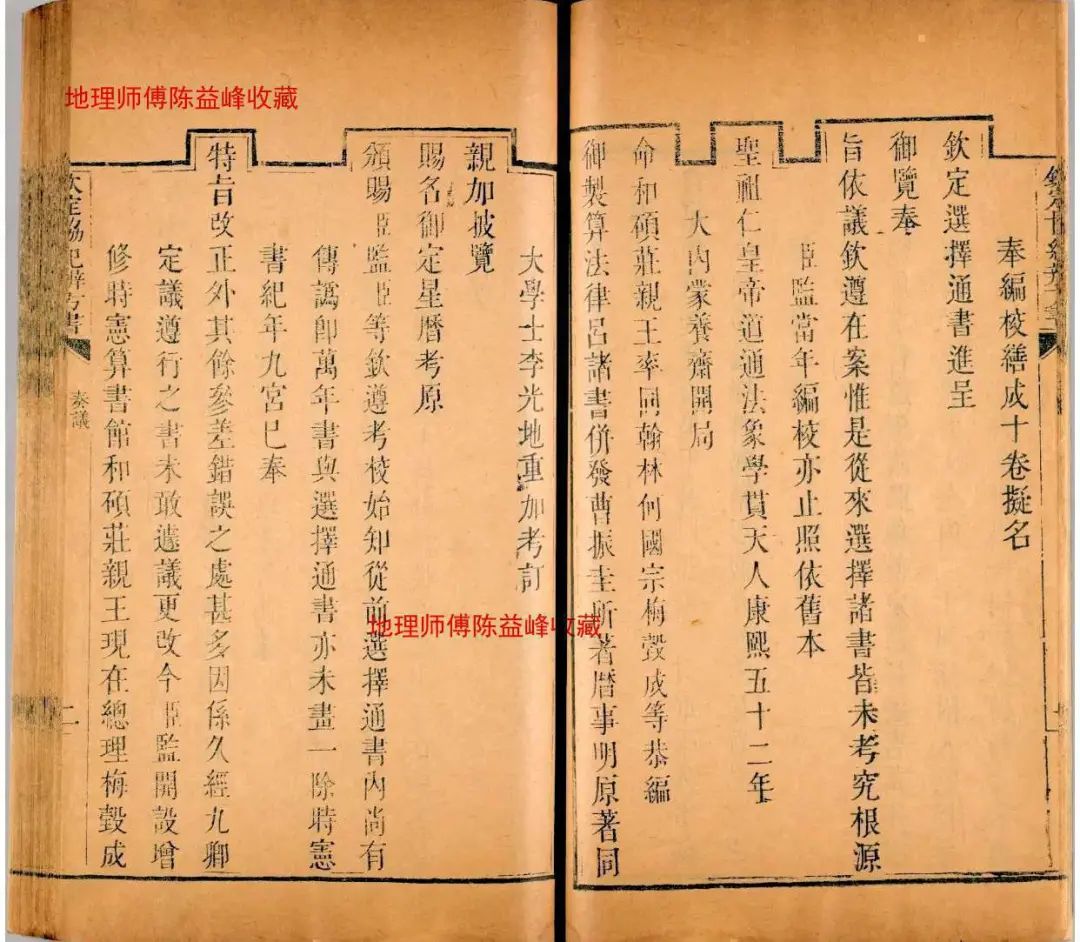 奉編校繕成十卷擬名
欽定選擇通書進呈
御覽奉
旨依議欽遵在案惟是從來選擇諸書皆未考究根源
臣監當年編校亦止照依舊本
聖祖仁皇帝道通法象學貫天人康熙五十二年
大內蒙養齋開局
命和碩莊親王率同翰林何國宗梅瑴成等恭編
御製算法律呂諸書併發曹振圭所著曆事明原著同
大學士李光地重加考訂
親加披覽
賜名御定星曆考原
頒賜臣監臣等欽遵考校始知從前選擇通書內尚有
傳譌卽萬年書與選擇通書亦未畫一除時憲
書紀年九宮已奉
特旨改正外其餘參差錯誤之處甚多因係久經九卿
定議遵行之書未敢遽議更改今臣監開設增
修時憲算書館和碩莊親王現在總理梅瑴成
欽定協紀辨方書
奏議
二
地理师傅陈益峰收藏
地理师傅陈益峰收藏